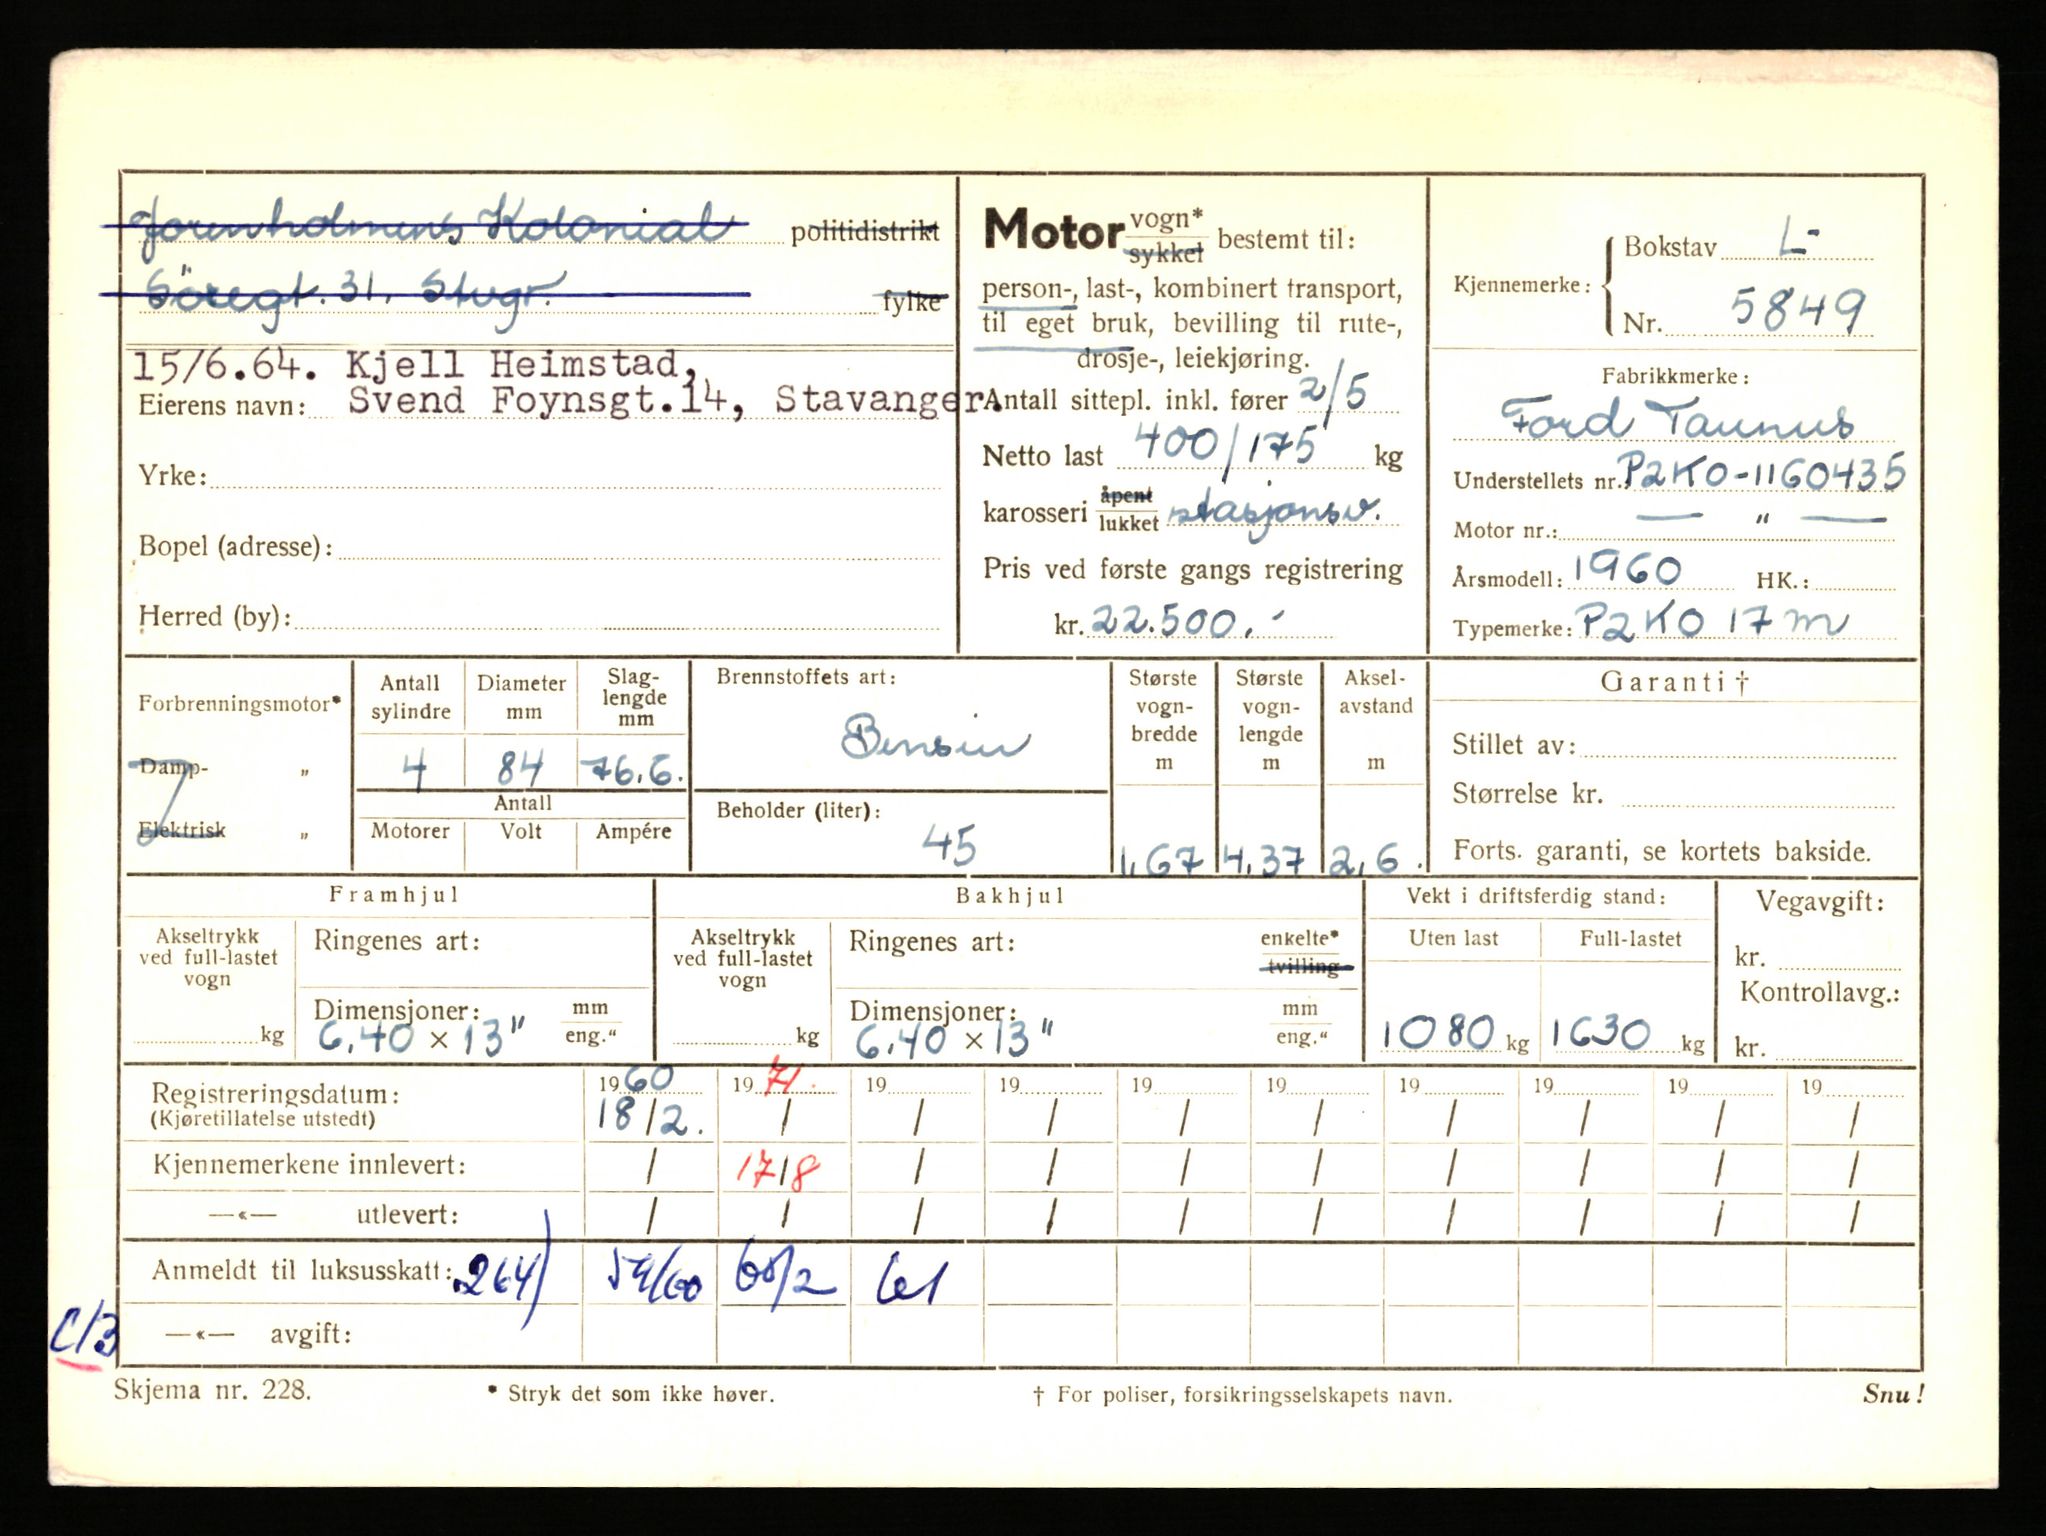 Jorenholmens Kolonial politidistrikt
Söregt. 31. Stvgr. fylke
15/6.64. Kjell Heimstad,
Eierens navn: Svend Foynsgt.14, Stavanger.
Yrke:
Bopel (adresse):
Herred (by):
Motor vogn* sykkel bestemt til:
person-, last-, kombinert transport,
til eget bruk, bevilling til rute-,
drosje-, leiekjøring.
Antall sittepl. inkl. fører 2/5
Netto last 400/175 kg
karosseri åpent lukket stasjonsv.
Pris ved første gangs registrering
kr. 22.500.-
Kjennemerke: Bokstav L-
Nr. 5849
Fabrikkmerke:
Ford Taunus
Understellets nr. P2KO-1160435
Motor nr.: — " —
Årsmodell: 1960 HK.:
Typemerke: P2KO 17m
Forbrenningsmotor*
Damp- "
Elektrisk "
Antall sylindre Diameter mm Slag-lengde mm
4 84 76.6.
Antall
Motorer Volt Ampére
Brennstoffets art:
Bensin
Beholder (liter):
45
Største vogn-bredde m Største vogn-lengde m Aksel-avstand m
1,67 4,37 2,6.
Garanti †
Stillet av:
Størrelse kr.
Forts. garanti, se kortets bakside.
Framhjul
Akseltrykk ved full-lastet vogn
kg
Ringenes art:
Dimensjoner: mm eng."
6.40 × 13"
Bakhjul
Akseltrykk ved full-lastet vogn
kg
Ringenes art: enkelte* tvilling
Dimensjoner: mm eng."
6.40 × 13"
Vekt i driftsferdig stand:
Uten last Full-lastet
1080 kg 1630 kg
Vegavgift:
kr.
Kontrollavg.:
kr.
Registreringsdatum: 1960 1971. 19 19 19 19 19 19 19 19
(Kjøretillatelse utstedt) 18/2. / / / / / / / / /
Kjennemerkene innlevert: / 17/8 / / / / / / / /
—«— utlevert: / / / / / / / / / /
Anmeldt til luksusskatt: 264) 59/60 60/2 61
C/3 —«— avgift:
Skjema nr. 228. * Stryk det som ikke høver. † For poliser, forsikringsselskapets navn. Snu!